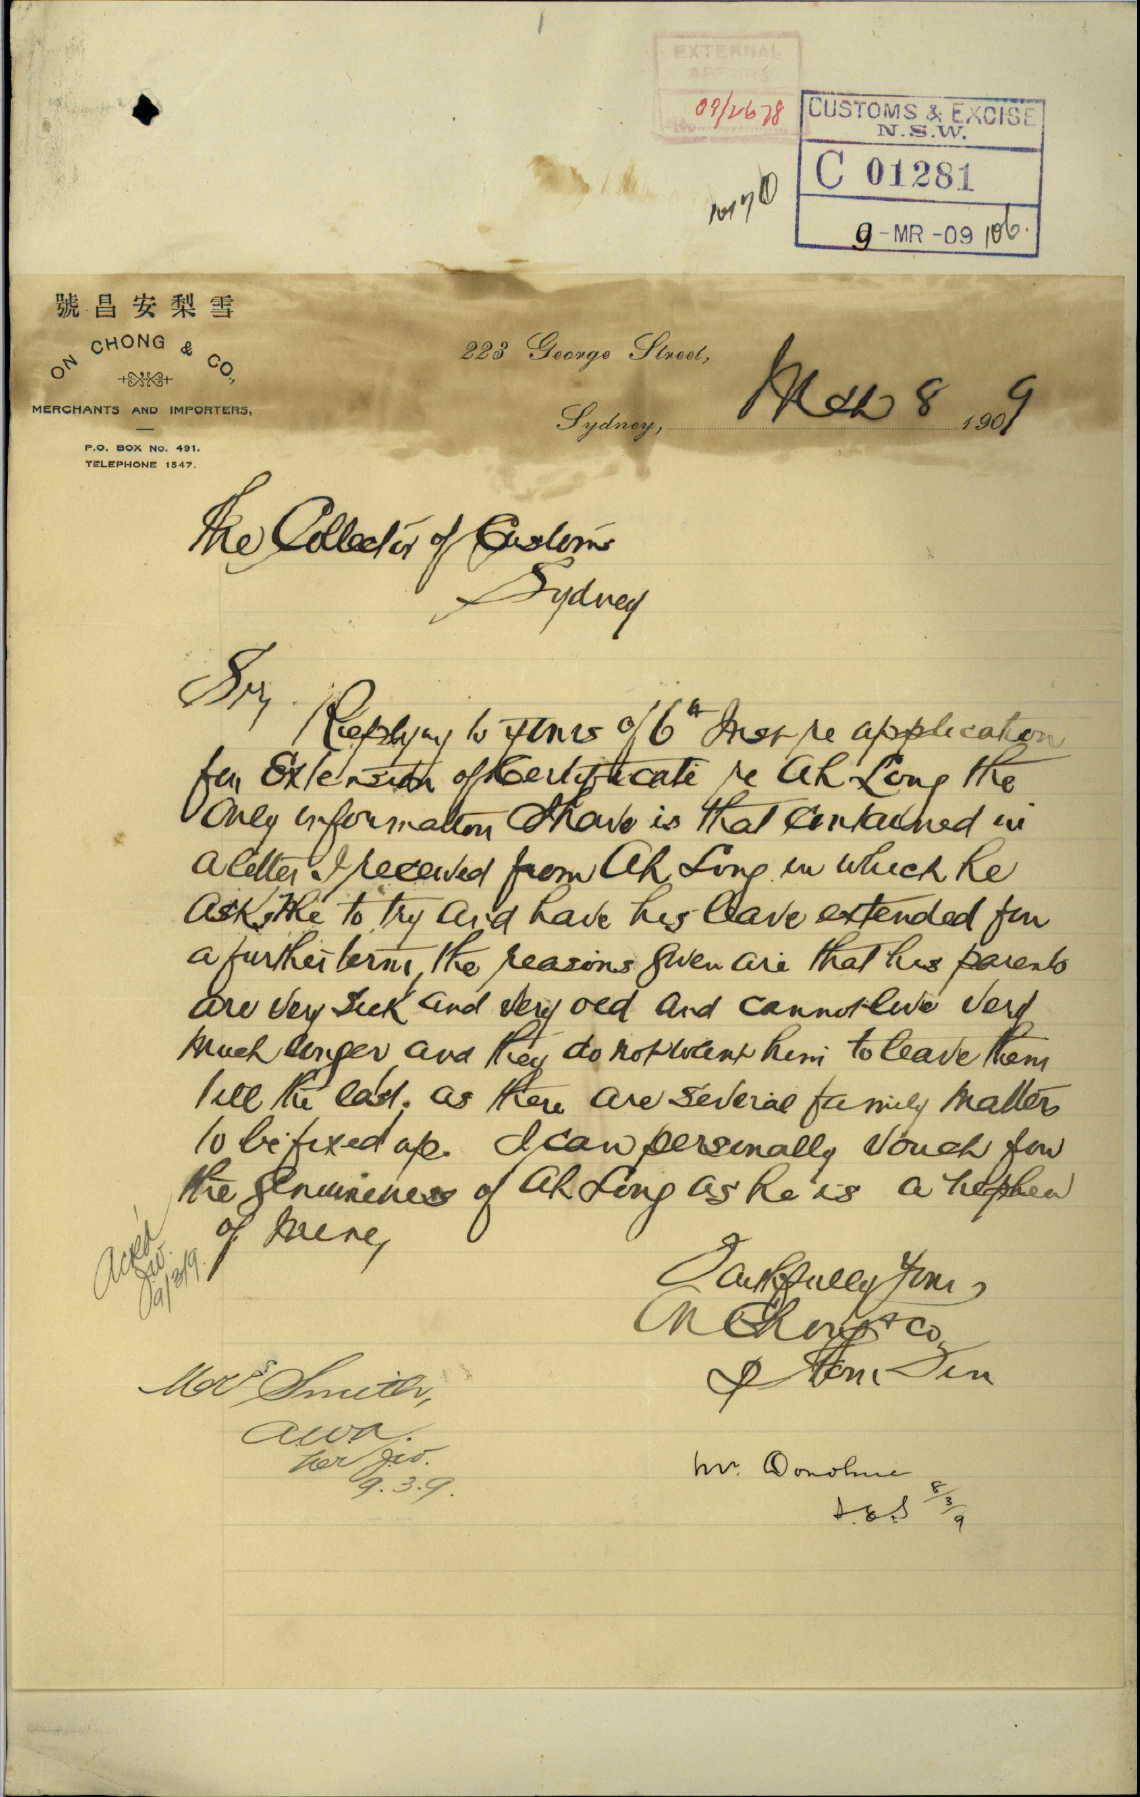 EXTERNAL
AFFAIRS
09/2678
CUSTOMS & EXCISE
N.S.W.
C 01281
9-MR-09 106.
號昌安梨雪
ON CHONG & CO.,
MERCHANTS AND IMPORTERS,
P.O. BOX No. 491.
TELEPHONE 1547.
223 George Street,
Sydney, Mch 8 1909
The Collector of Customs
Sydney
Sir,
Replying to yours of 6th Inst re application
for Extension of Certificate re Ah Long the
only information I have is that contained in
a letter I received from Ah Long in which he
asks me to try and have his leave extended for
a further term, the reasons given are that his parents
are very sick and very old and cannot live very
much longer and they do not want him to leave them
till the last. as there are several family matters
to be fixed up. I can personally vouch for
the genuineness of Ah Long as he is a nephew
of mine,
Faithfully Yours
On Chong & Co.
Ackd
9/3/9.
Smith,
9.3.9.
Mr. Donohue
8/3/9